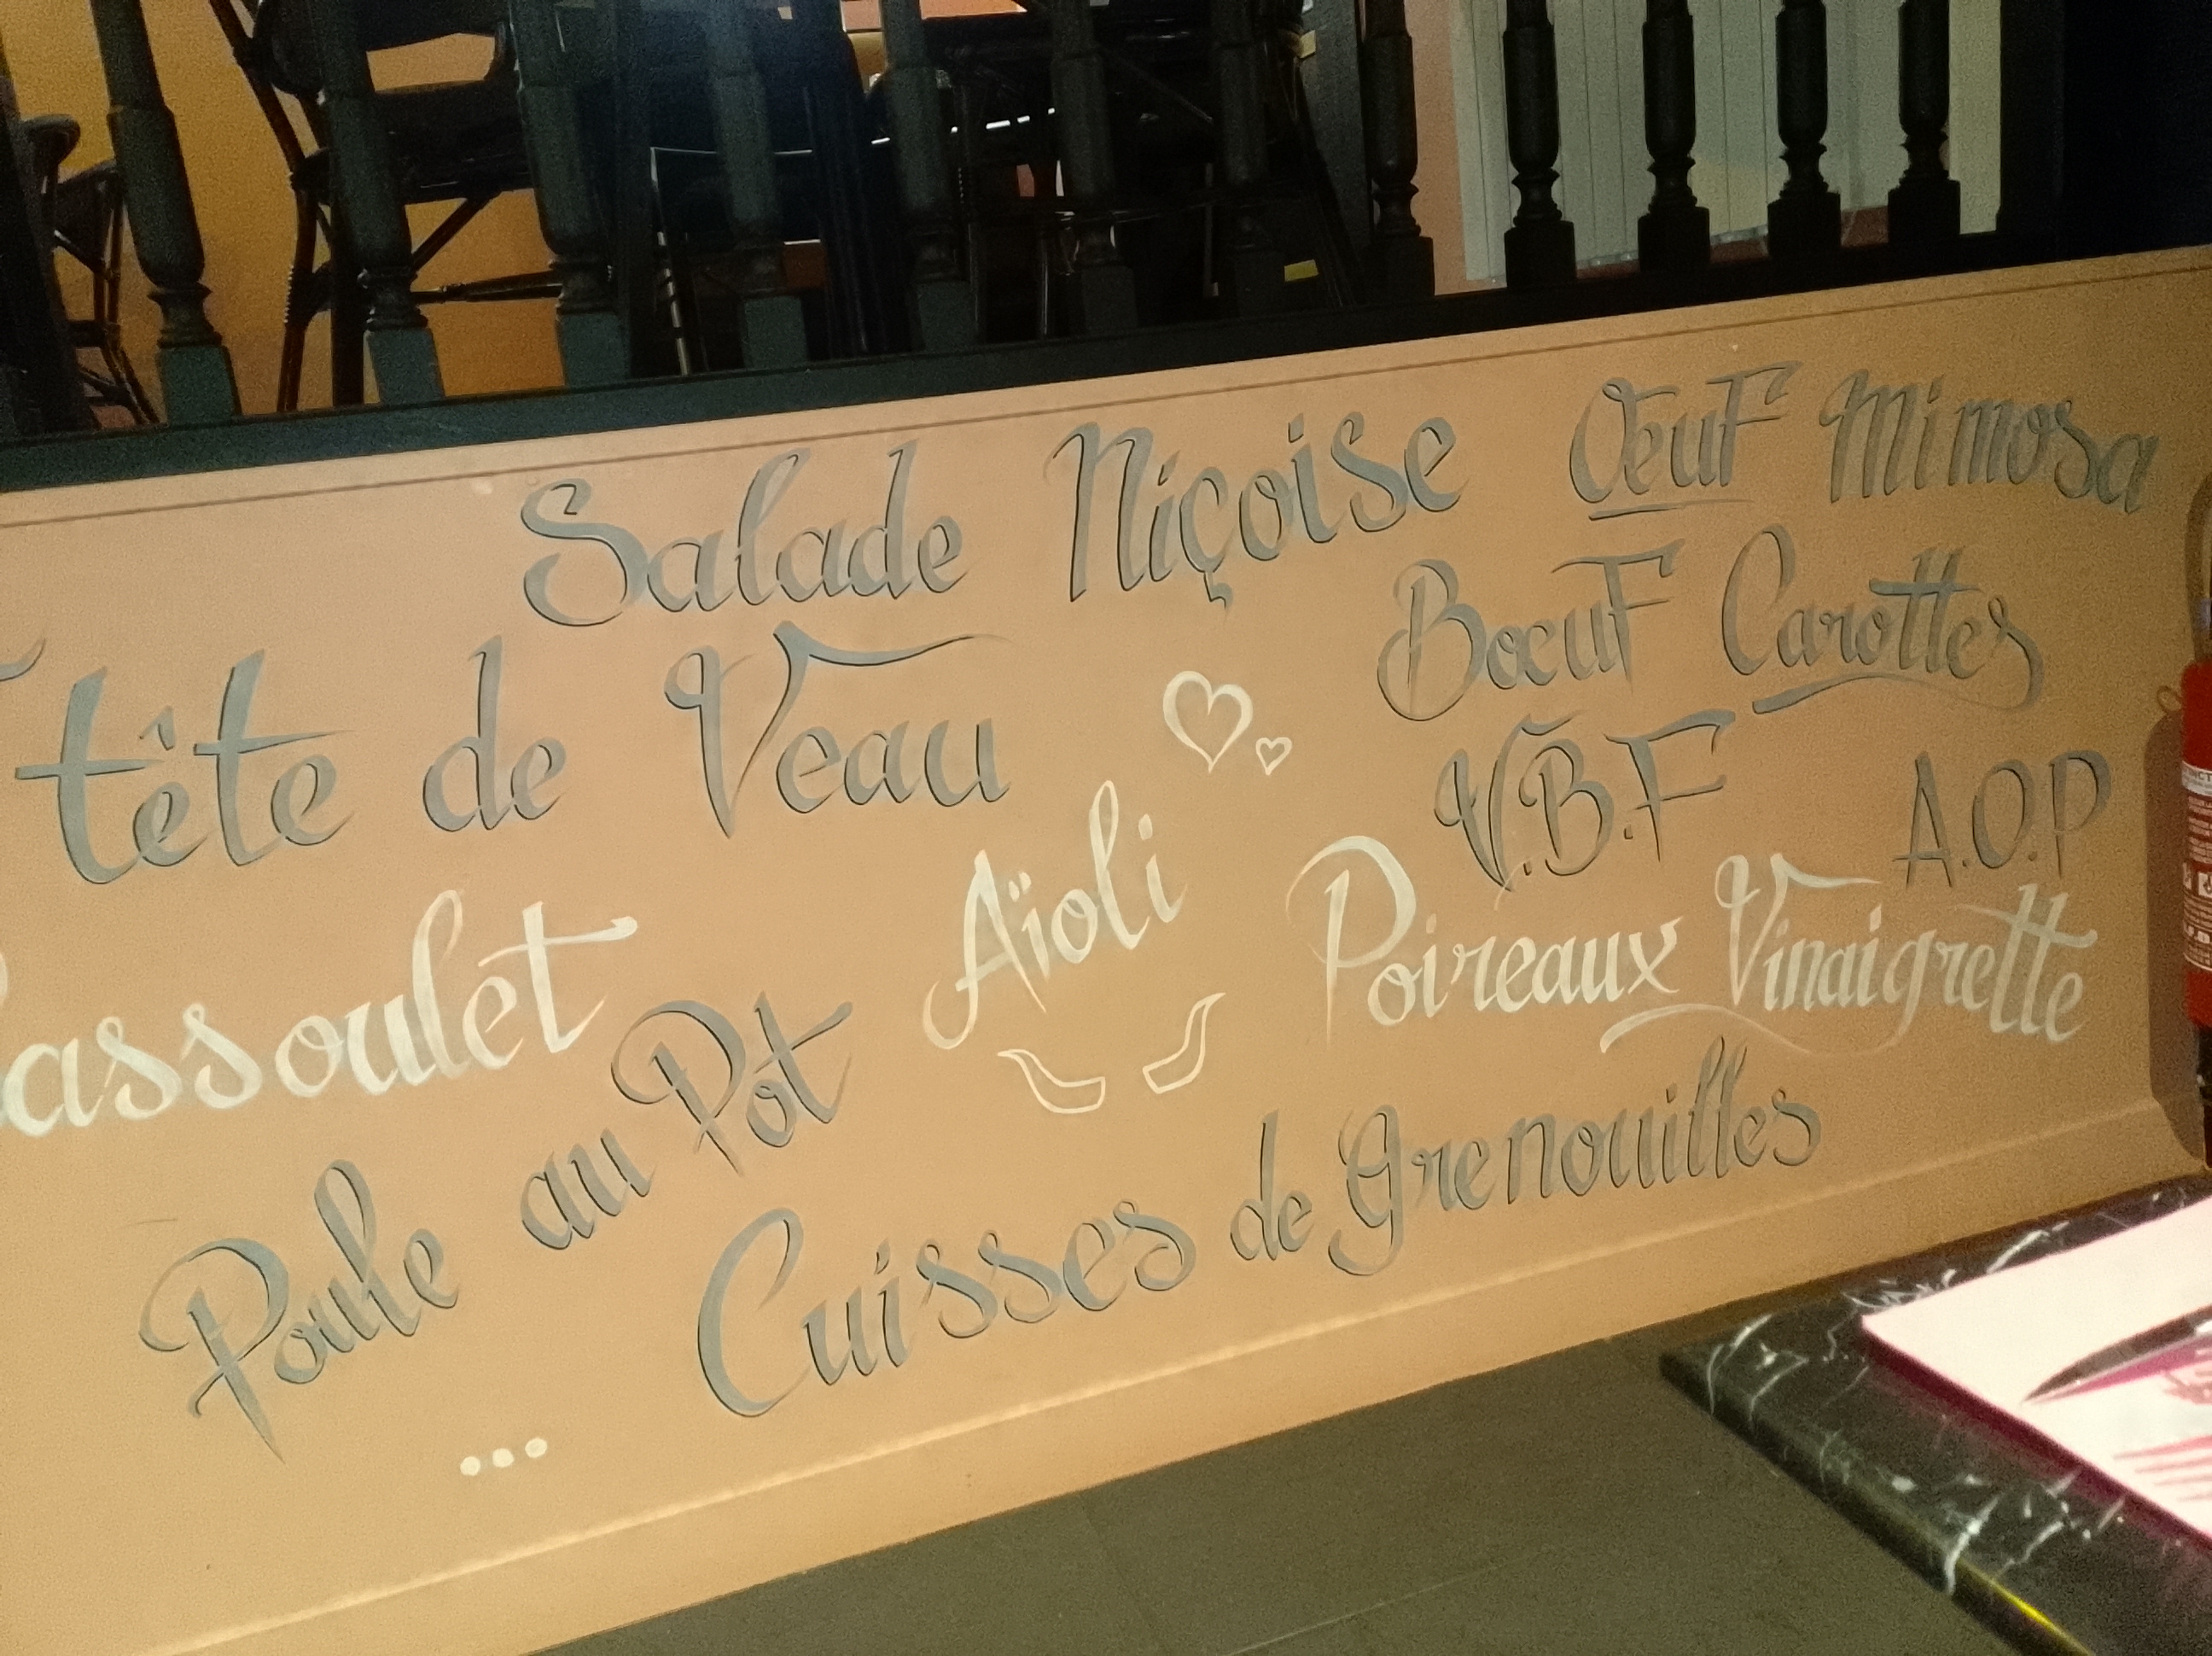 Salade Niçoise
Œuf Mimosa
Bœuf Carottes
tête de Veau
V.B.F
A.O.P
Aïoli
Poireaux Vinaigrette
assoulet
Poule au Pot
Cuisses de Grenouilles
...